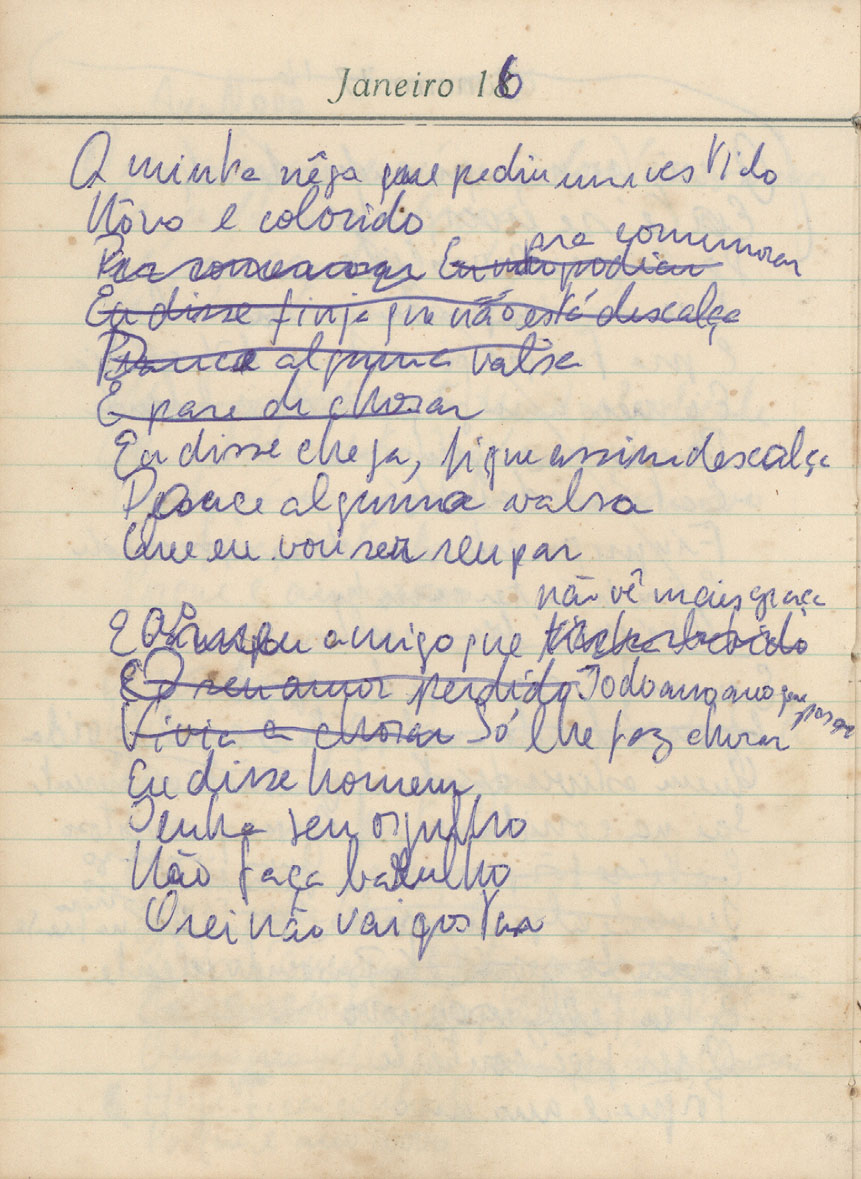 Janeiro 16
O minha nêga que pediu um vestido
Nôvo e colorido
Pra comemorar Eu não podia pra comemorar
Eu disse finja que não está descalça
Dance alguma valsa
E pare de chorar
Eu disse chega, fique assim descalça
Dance alguma valsa
Que eu vou ser seu par
não vê mais graça
E meu amigo que
E O seu amor perdido Todo ano ano que passar
Vivia a chorar Só lhe faz chorar
Eu disse homem
Tenha seu orgulho
Não faça barulho
O rei não vai gostar